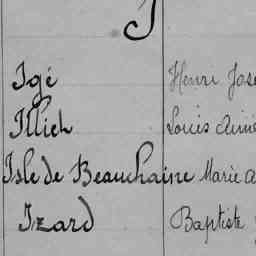 I
Igé Henri Jose
Illich Louis Aimé
Isle de Beauchaine Marie A
Izard Baptiste